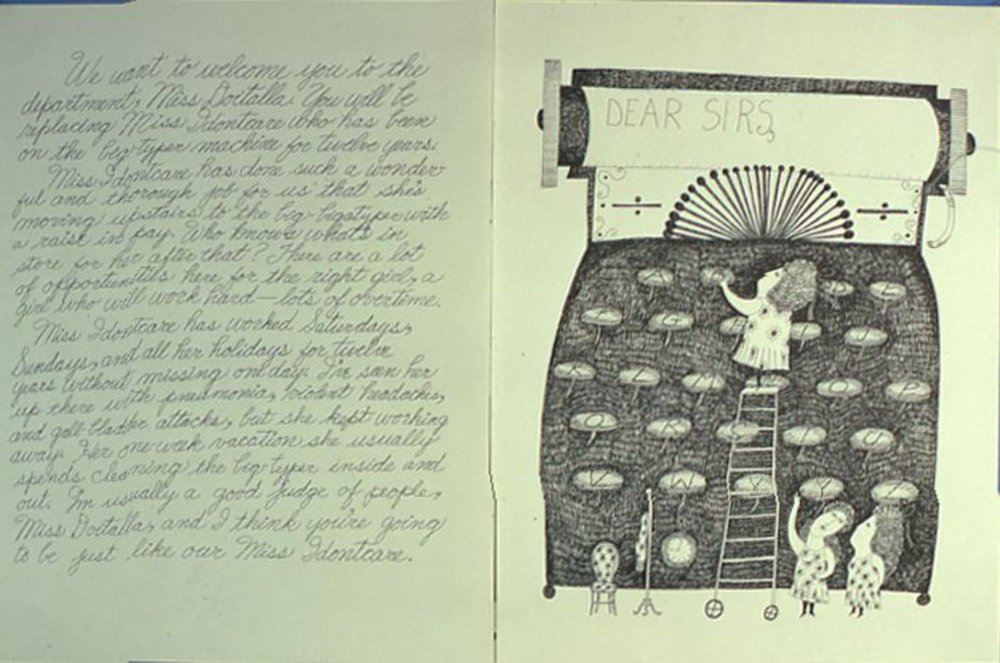 We want to welcome you to the
department, Miss Doitalla. You will be
replacing Miss Idontcare who has been
on the big-typer machine for twelve years.
Miss Idontcare has done such a wonder-
ful and thorough job for us that she's
moving upstairs to the big-bigatyper with
a raise in pay. Who knows what's in
store for her after that? There are a lot
of opportunities here for the right girl, a
girl who will work hard—lots of overtime.
Miss Idontcare has worked Saturdays,
Sundays, and all her holidays for twelve
years without missing one day. I've seen her
up there with pneumonia, violent headaches,
and gall bladder attacks, but she kept working
away. Her one-week vacation she usually
spends cleaning the big-typer inside and
out. I'm usually a good judge of people,
Miss Doitalla, and I think you're going
to be just like our Miss Idontcare.
DEAR SIRS,
A E
F G J
K L M O P
Q R T U
V W X Y Z